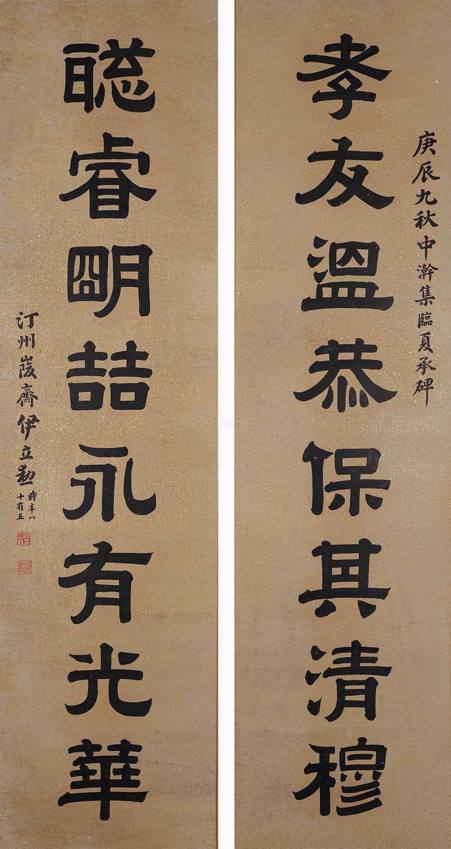 庚辰九秋中澣集臨夏承碑
孝友溫恭保其清穆
聡睿明喆永有光華
汀州峻齋伊立勳
時年八
十有五